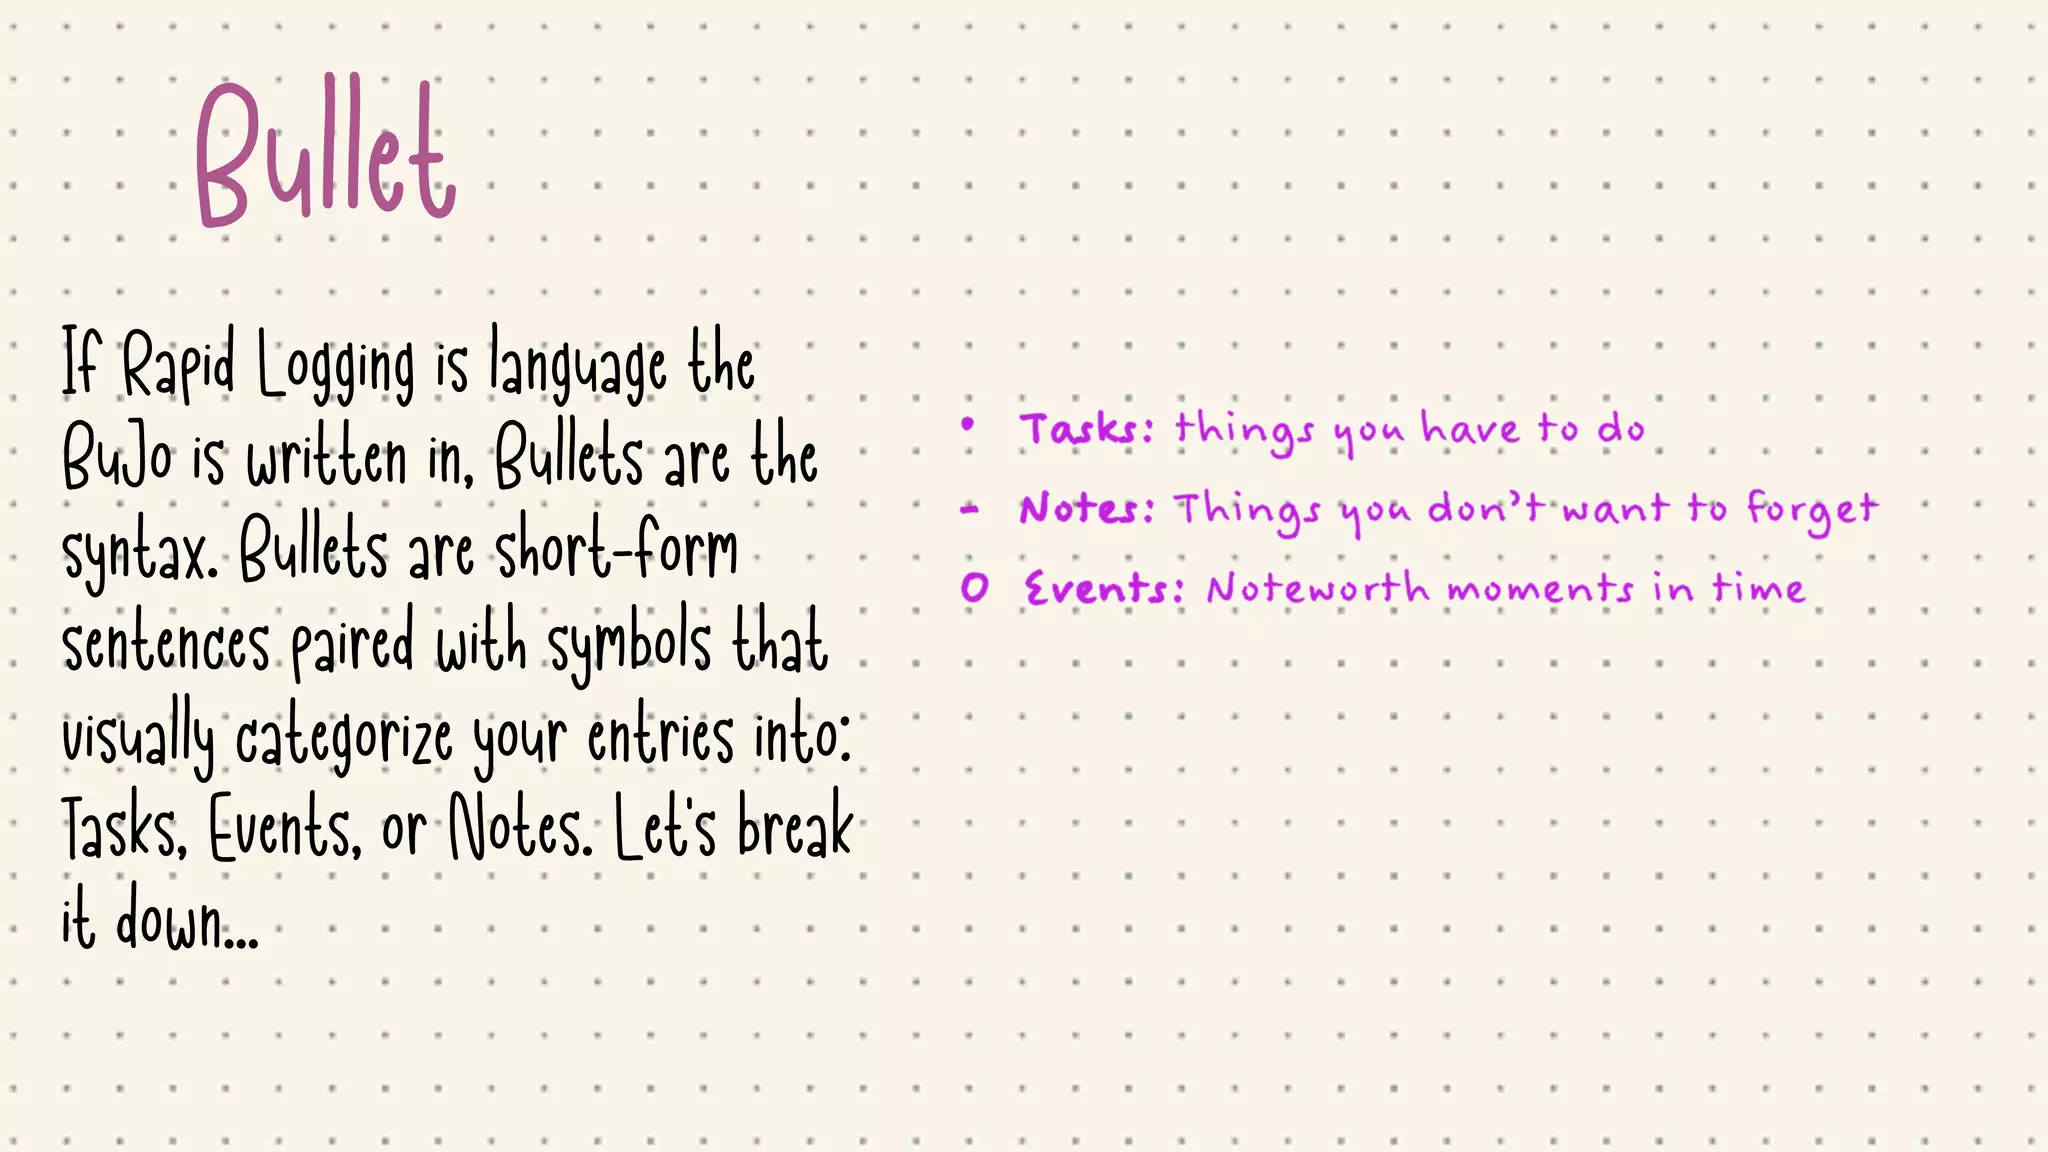 Bullet
If Rapid Logging is language the
BuJo is written in, Bullets are the
syntax. Bullets are short-form
sentences paired with symbols that
visually categorize your entries into:
Tasks, Events, or Notes. Let's break
it down...
• Tasks: things you have to do
- Notes: Things you don't want to forget
O Events: Noteworth moments in time